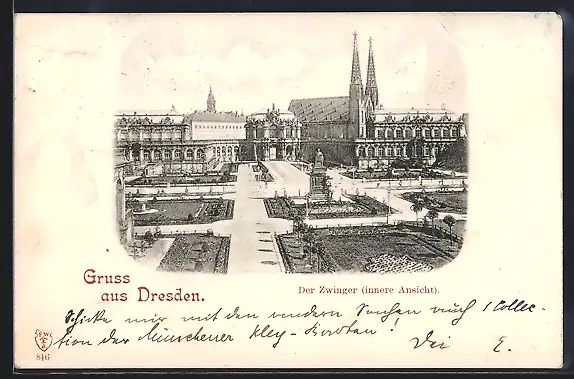 Gruss
aus Dresden.
Der Zwinger (innere Ansicht).
Schicke mir mit den andern Sachen auch 1 Collec-
tion der Münchener
E.
846